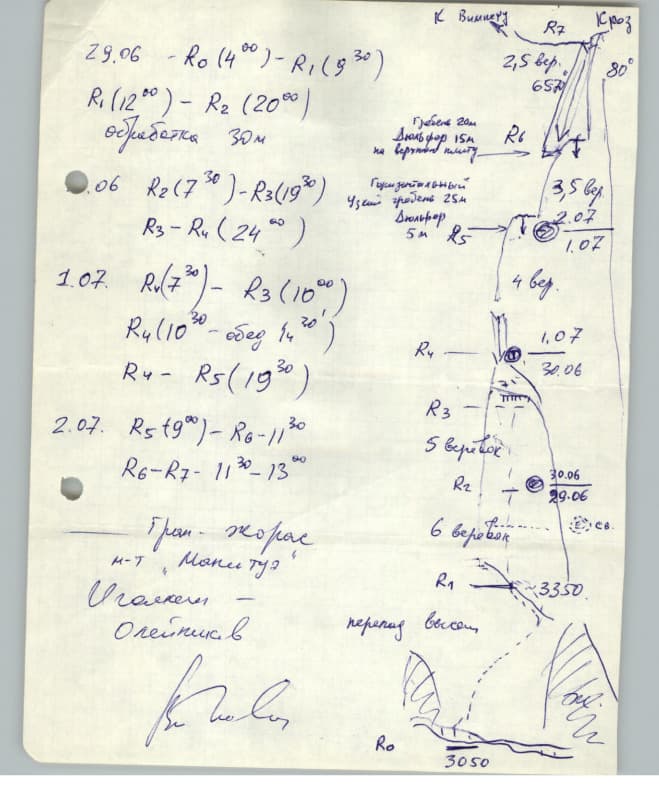 29.06 - R0 (4⁰⁰) - R1 (9³⁰)
R1 (12⁰⁰) - R2 (20⁰⁰)
обработка 30м
.06 R2 (7³⁰) - R3 (19³⁰)
R3 - R4 (24⁰⁰)
1.07. R4 (7³⁰) - R3 (10⁰⁰)
R4 (10³⁰ - обед 14³⁰)
R4 - R5 (19³⁰)
2.07. R5 (9⁰⁰) - R6 - 11³⁰
R6 - R7 - 11³⁰ - 13⁰⁰
Гран-жорас
м-т "Манитуа"
Олейников
К Вимперу
R7
К роз
2,5 вер.
65°
80°
Гребень 20м
Дюльфер 15м
на верхнюю плиту
R6
3,5 вер.
Горизонтальный
Узкий гребень 25м
Дюльфер
5м
R5
2.07
1.07
4 вер.
R4
1.07
30.06
R3
5 веревок
R2
30.06
29.06
6 веревок
св.
R1
~3350
перепад высот
R0
3050